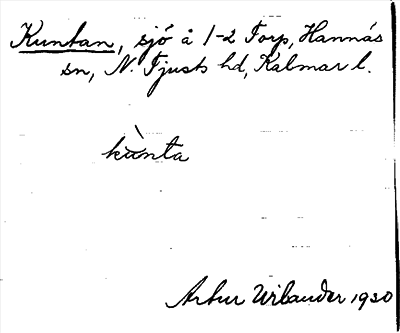 Kuntan, sjö å 1-2 Torp, Hannäs
sn, N. Tjusts hd, Kalmar l.
kùnta
Artur 1930